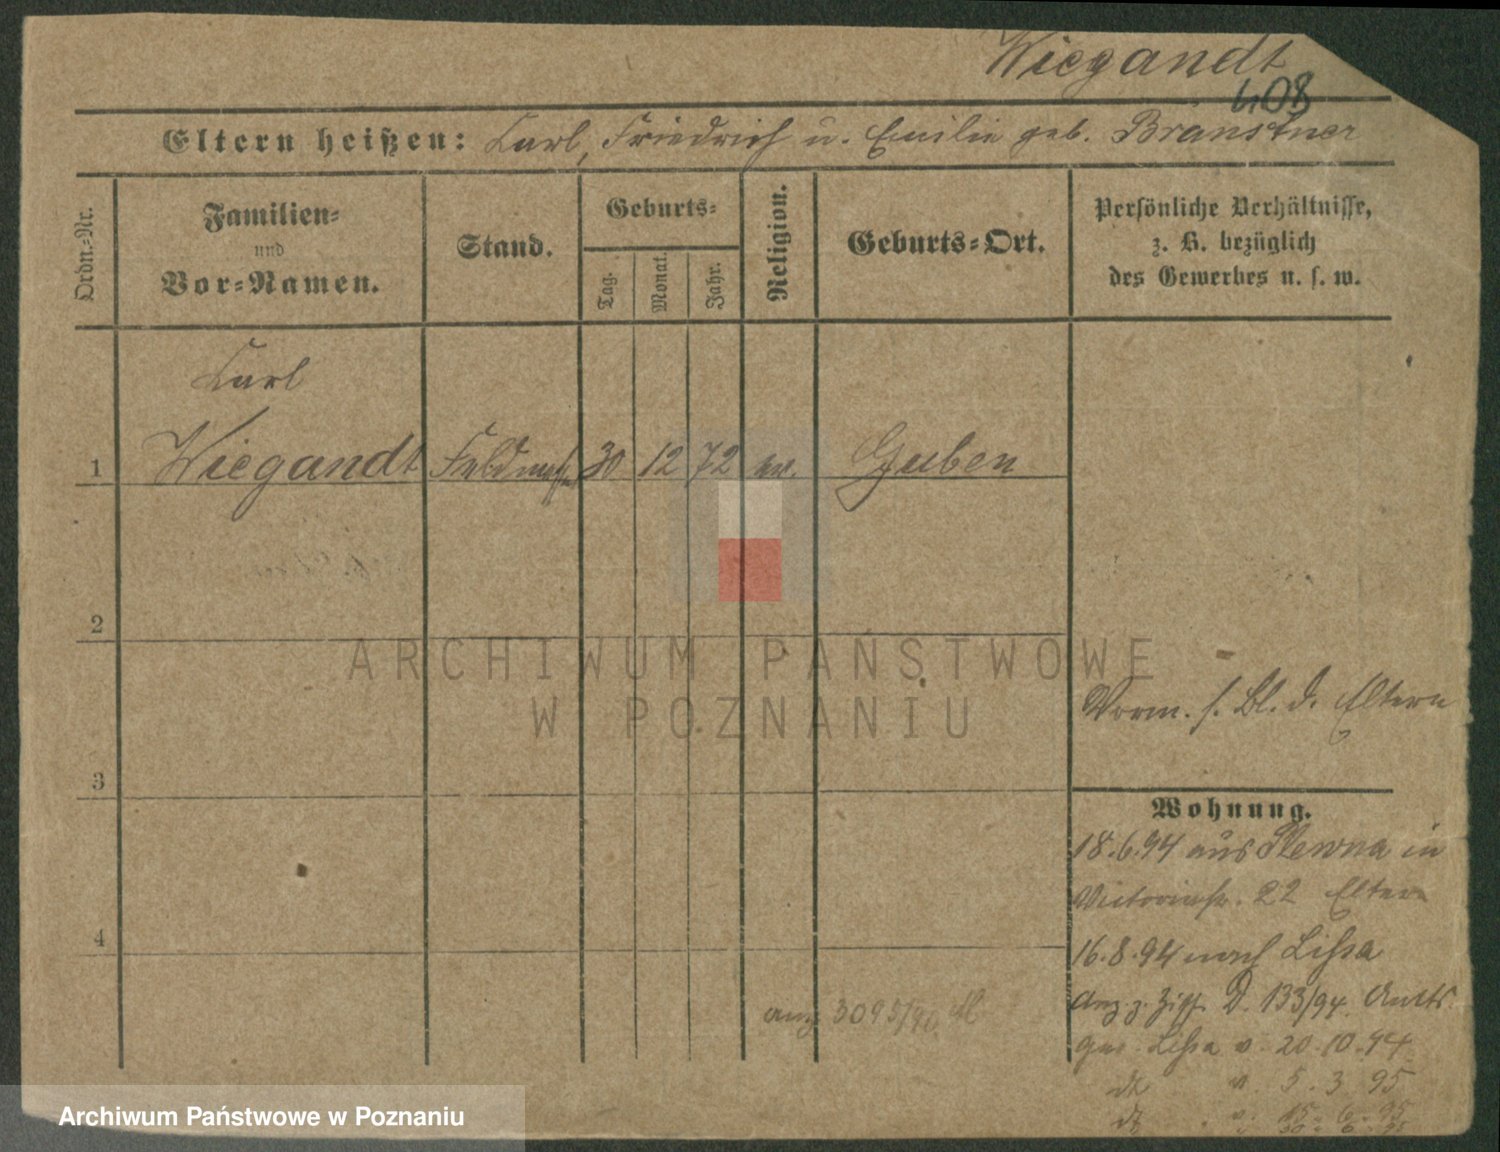 Wiegandt
408
Eltern heißen: Carl, Friedrich u. Emilie geb. Bränstner
Ordn.=Nr.
Familien=
und
Vor=Namen.
Stand.
Geburts=
Tag.
Monat.
Jahr.
Religion.
Geburts=Ort.
Persönliche Verhältnisse,
z. B. bezüglich
des Gewerbes u. s. w.
Carl
1 Wiegandt 30 12 72 ev. Guben
2
3
4
Vorm. s. Bl. d. Eltern
Wohnung.
18.6.94 aus Plewna in
Victoriastr. 22 Eltern
16.8.94 nach Lissa
Anz. z. D. 133/94. Amts
Lissa v. 20.10.94
v. 5.3 95
v. 15. 6. 95
3095/90
ARCHIWUM PAŃSTWOWE
W POZNANIU
Archiwum Państwowe w Poznaniu